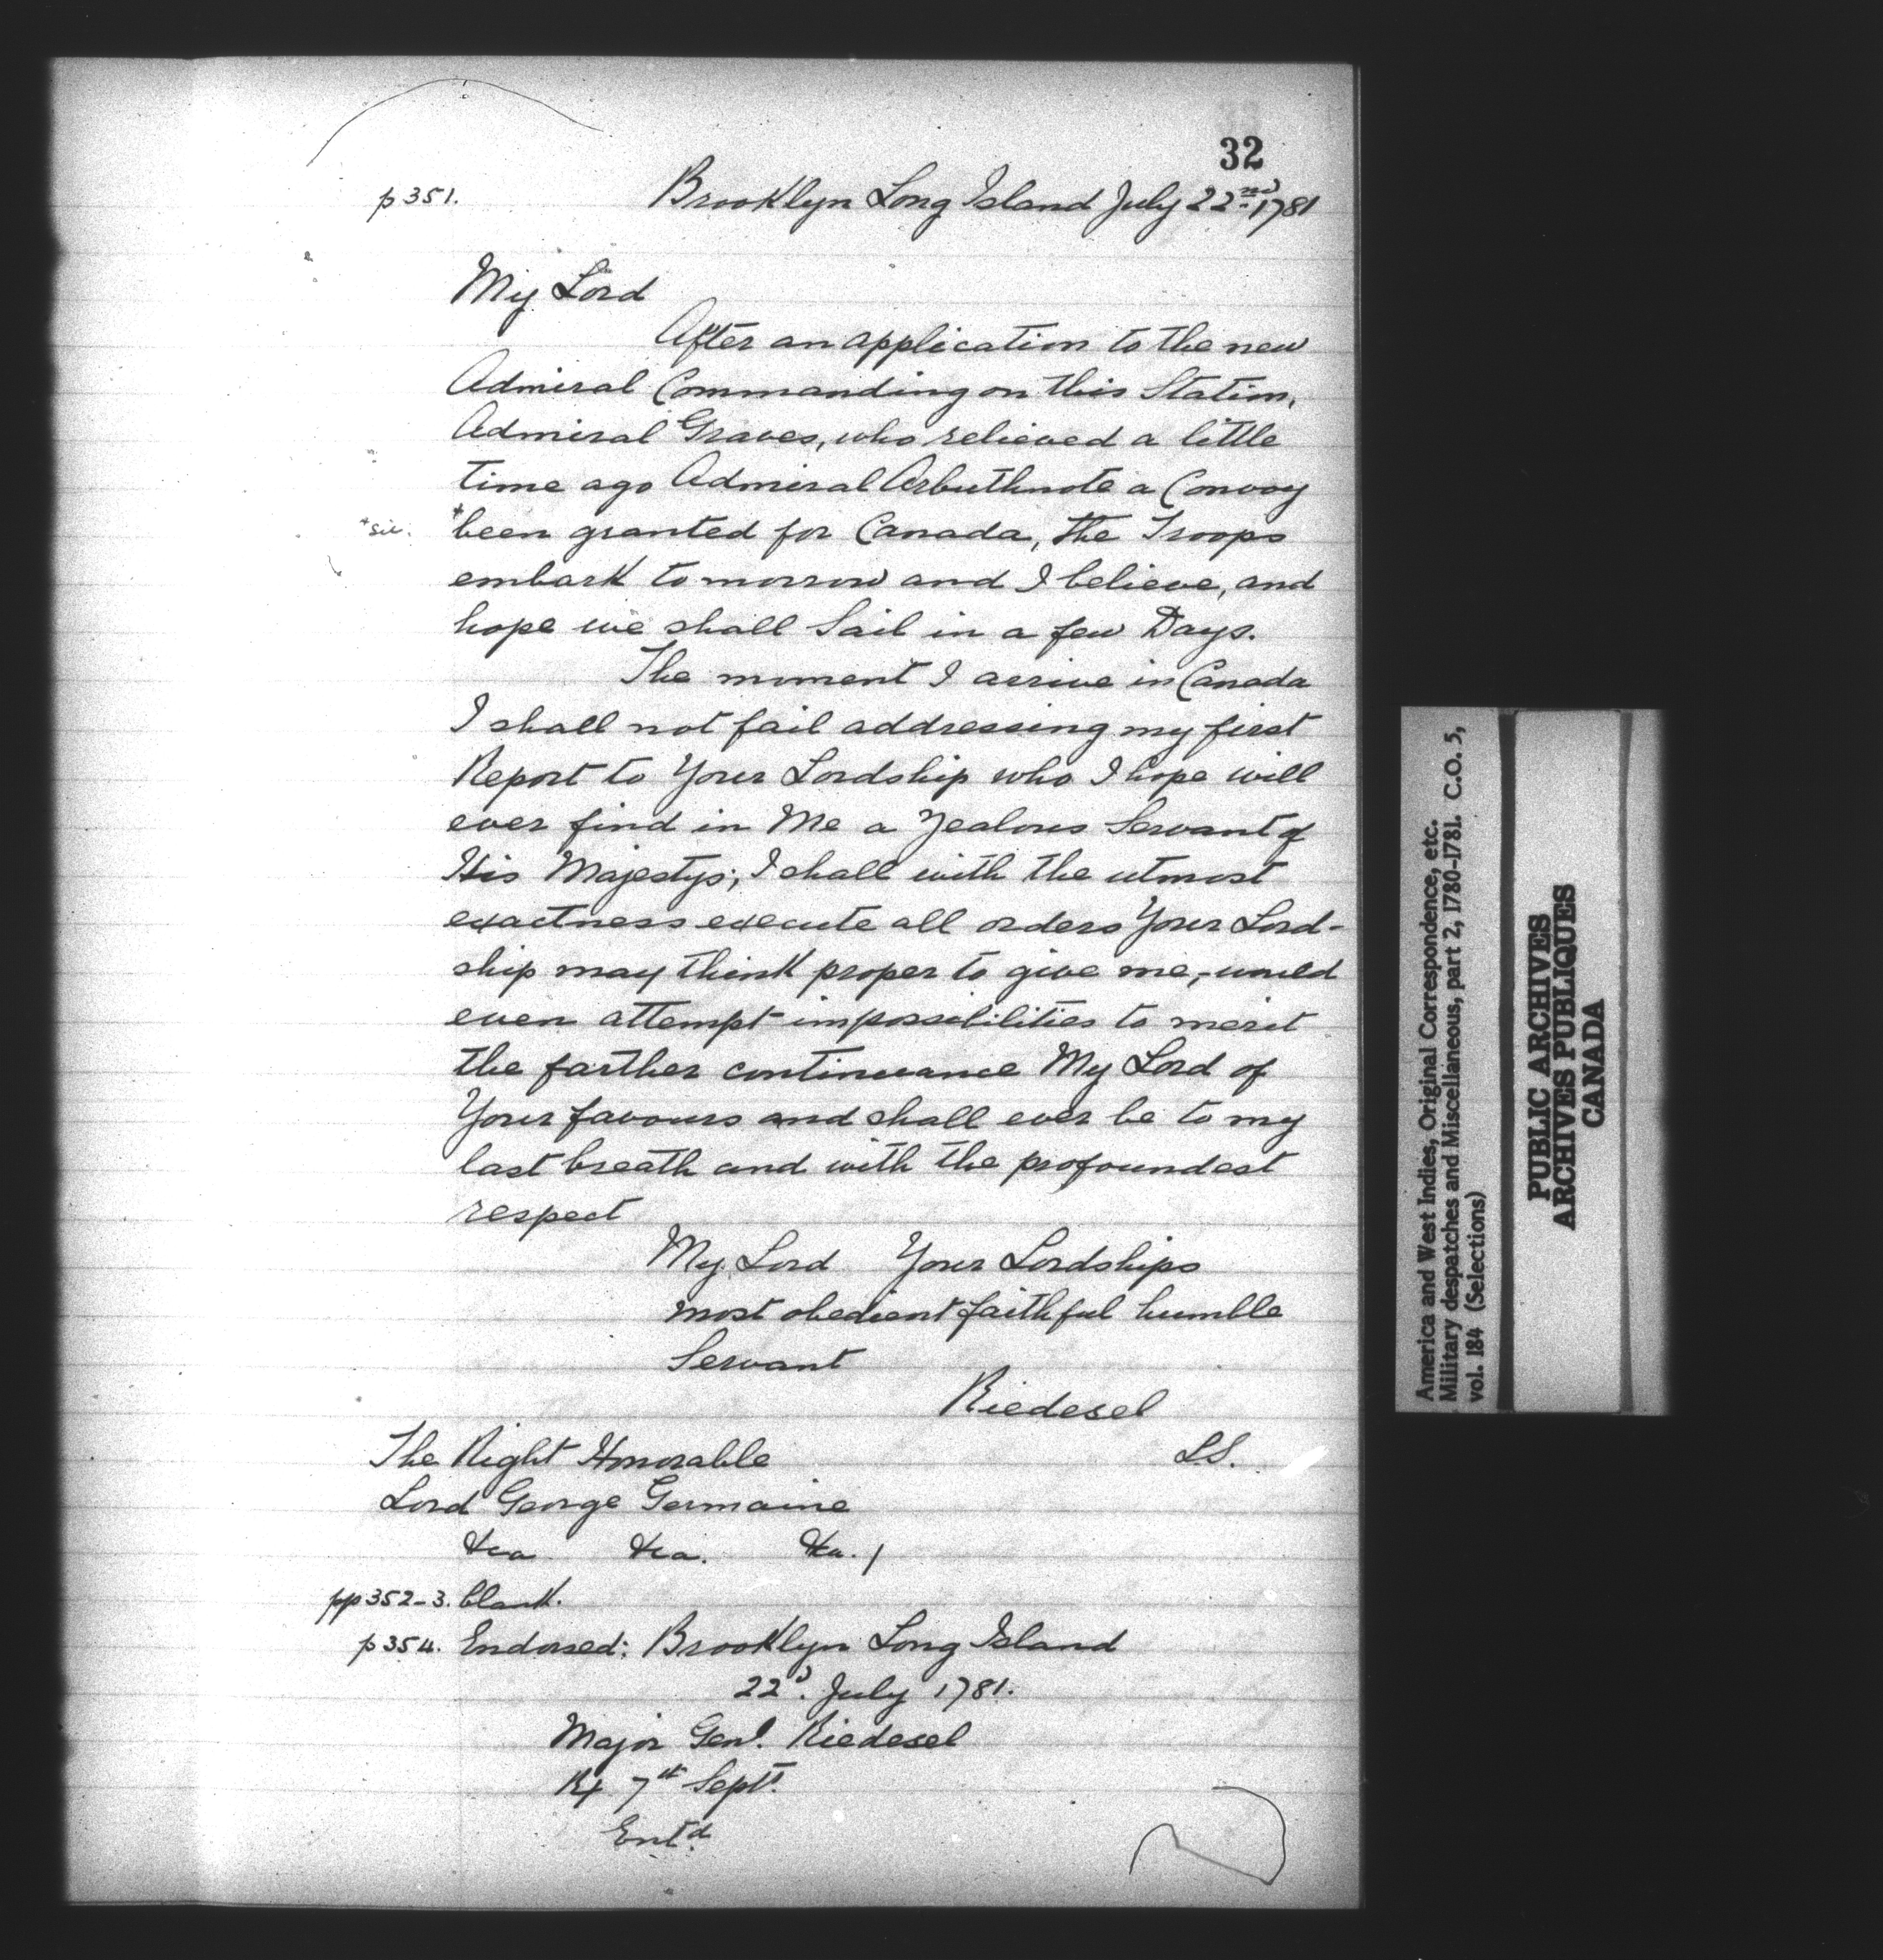 32
p 351. Brooklyn Long Island July 22nd 1781
My Lord
After an application to the new
Admiral Commanding on this Station,
Admiral Graves, who relieved a little
time ago Admiral Arbuthnote a Convoy
*sic. *been granted for Canada, the Troops
embark to morrow and I believe, and
hope we shall Sail in a few Days.
The moment I arrive in Canada
I shall not fail addressing my first
Report to Your Lordship who I hope will
ever find in Me a Zealous Servant of
His Majestys; I shall with the utmost
exactness execute all orders Your Lord-
ship may think proper to give me, would
even attempt impossibilities to merit
the farther continuance My Lord of
Your favours and shall ever be to my
last breath and with the profoundest
respect
My Lord Your Lordships
most obedient faithful humble
Servant
Riedesel
The Right Honorable LS.
Lord George Germaine
&ca &ca. &ca. /
pp 352-3. blank.
p 354. Endorsed: Brooklyn Long Island
22d. July 1781.
Major Genl. Riedesel
Rx 7th Sept.
Entd.
America and West Indies, Original Correspondence, etc.
Military despatches and Miscellaneous, part 2, 1780-1781. C.O. 5,
vol. 184 (Selections)
PUBLIC ARCHIVES
ARCHIVES PUBLIQUES
CANADA